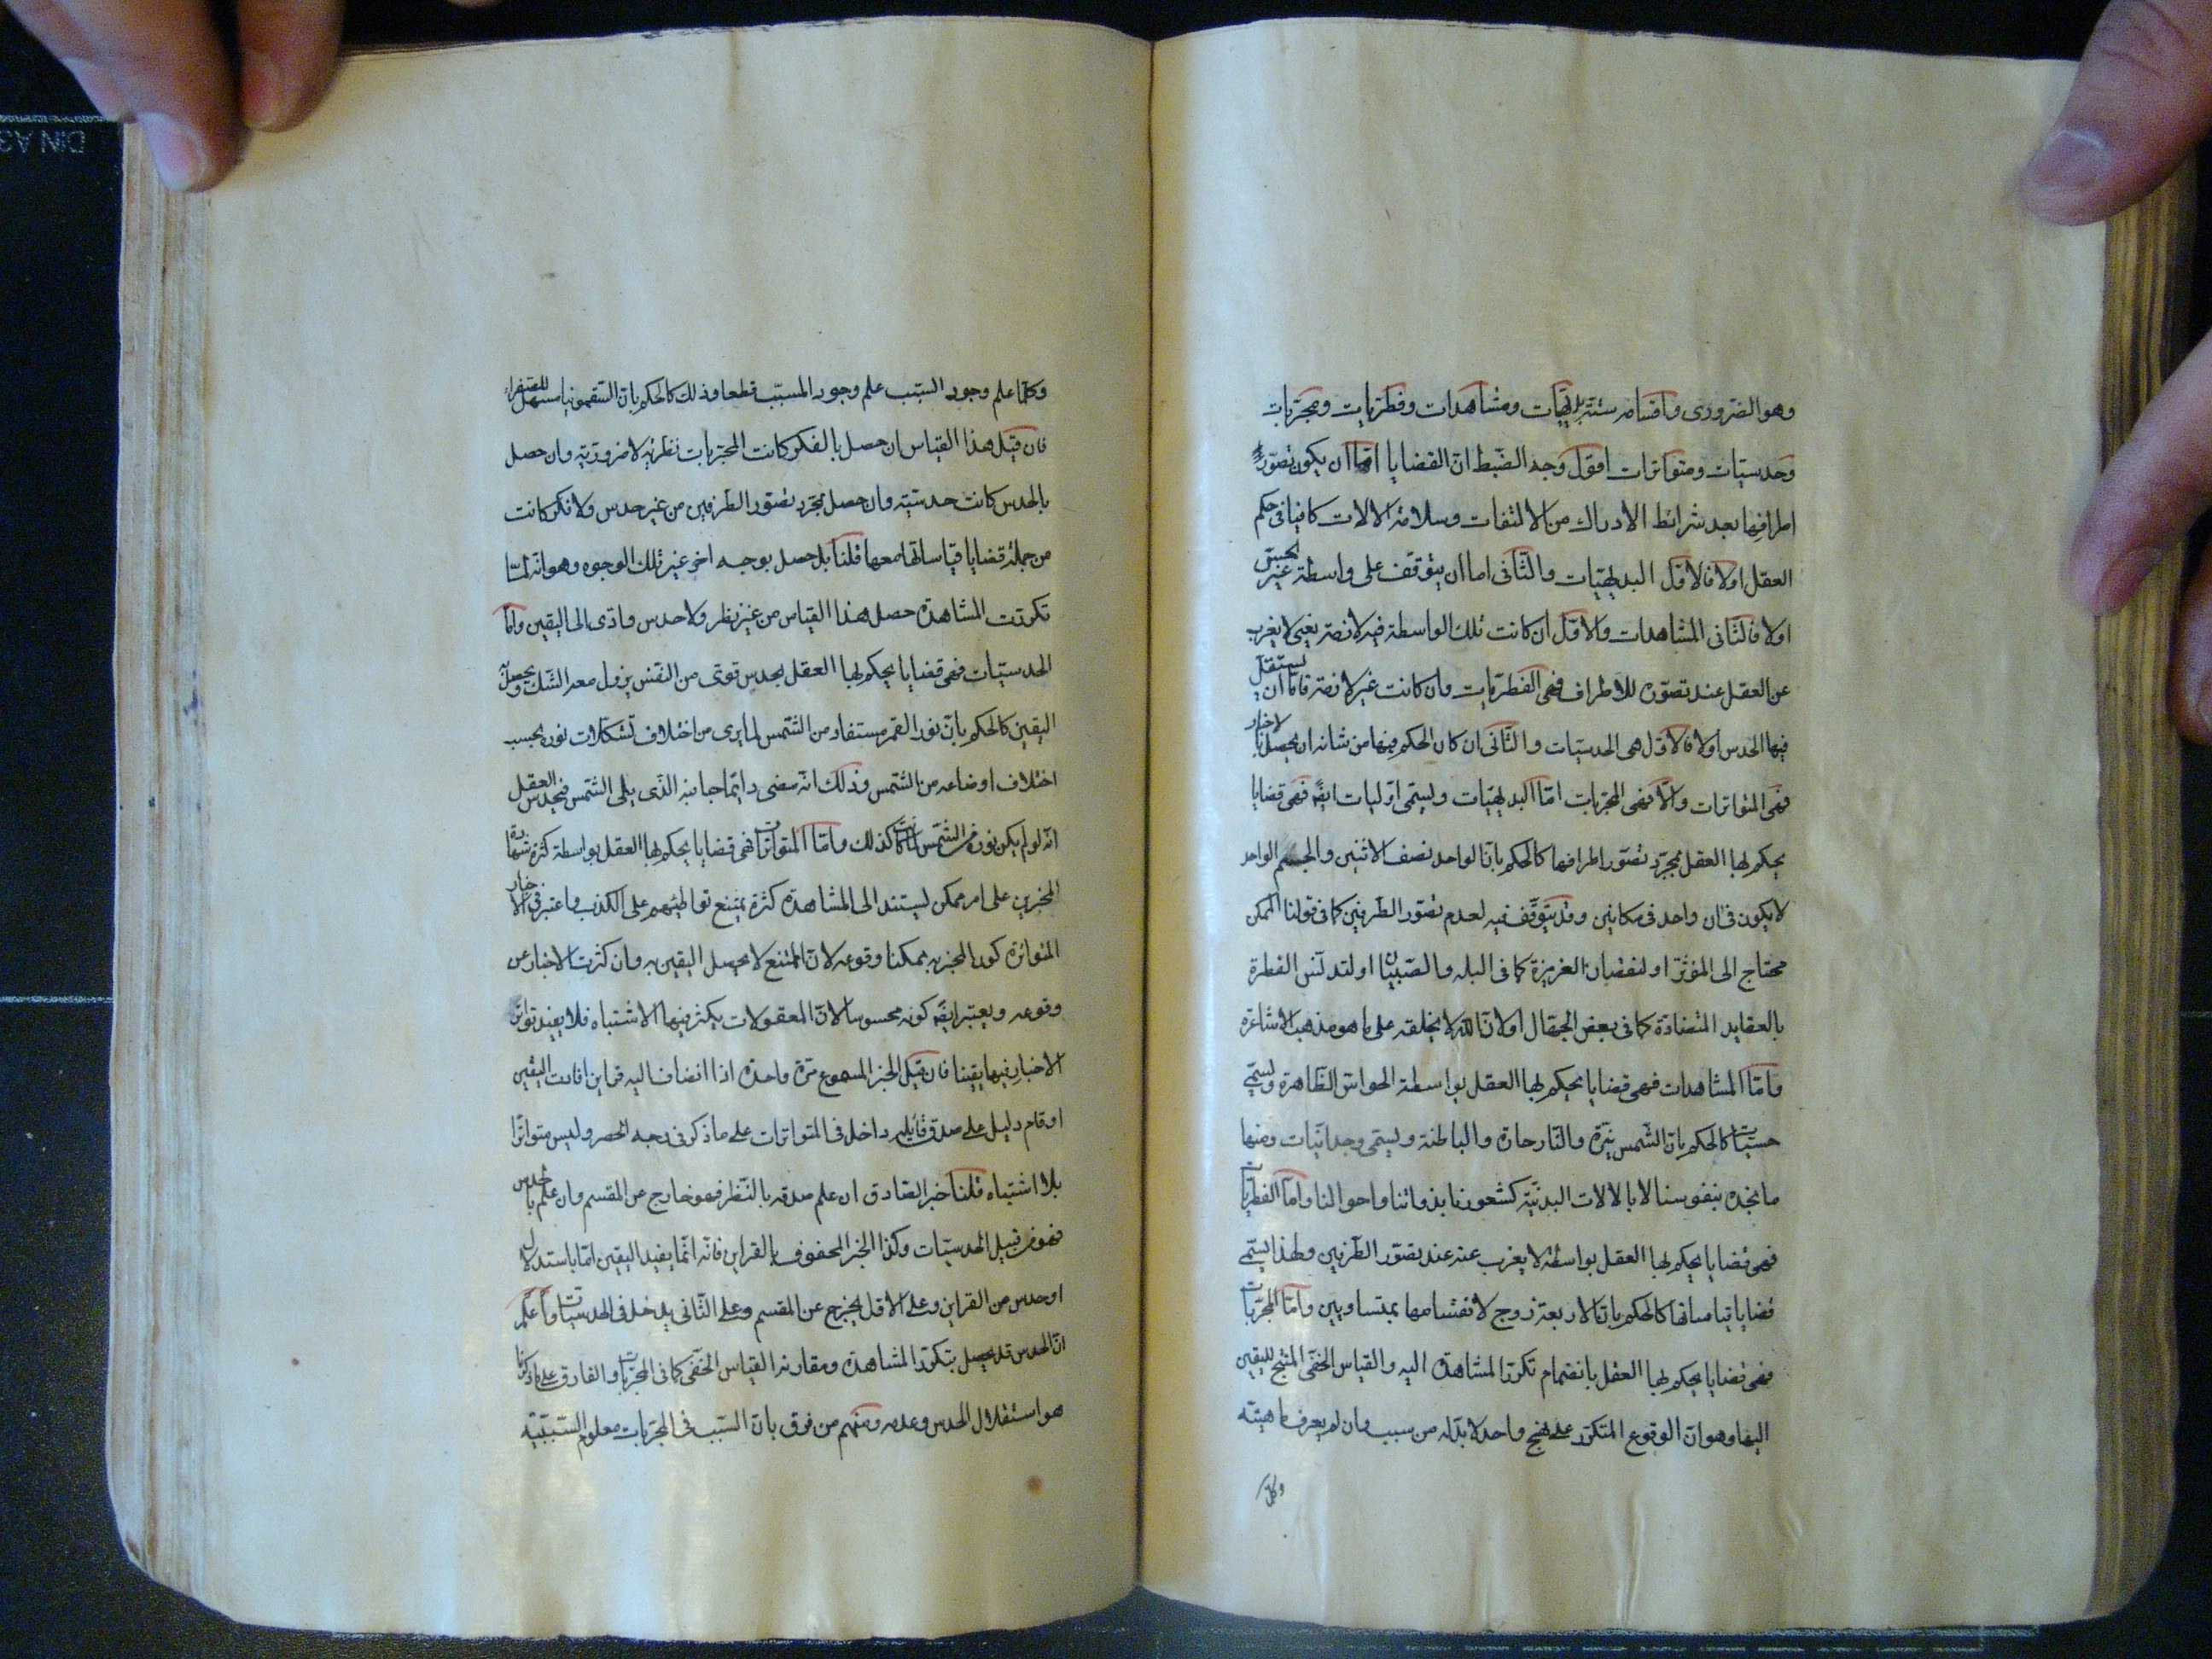 وهو الضرورى واقسامه ستة بديهيات ومشاهدات وفطريات ومجربات
وحدسيات ومتواترات اقول وجه الضبط ان القضايا اما ان يكون تصور
اطرافها بعد شرائط الادراك من الالتفات وسلامة الالات كافيا فى حكم
العقل اولا فالاول البديهيات والثانى اما ان يتوقف على واسطة غير الحس
اولا فالثانى المشاهدات والاول ان كانت تلك الواسطة فيه لازمة يعنى لا يغرب
عن العقل عند تصوره للاطراف فهى الفطريات وان كانت غير لازمة فاما ان يستقل
فيها الحدس اولا فالاول هى الحدسيات والثانى ان كان الحكم فيها من شانه ان يحصل بالاخبار
فهى المتواترات والا فهى المجربات اما البديهيات ويسمى اوليات ايضا فهى قضايا
يحكم لها العقل بمجرد تصور اطرافها كالحكم بان الواحد نصف الاثنين والجسم الواحد
لا يكون فى ان واحد فى مكانين وقد يتوقف فيه لعدم تصور الطرفين كما فى قولنا الممكن
محتاج الى المؤثر او لنقصان الغريزة كما فى البله والصبيان او لتدنس الفطرة
بالعقايد المتضادة كما فى بعض الجهال او لان الله لا يخلقه على ما هو مذهب الاشاعرة
واما المشاهدات فهى قضايا يحكم لها العقل بواسطة الحواس الظاهرة ويسمى
حسيات كالحكم بان الشمس نيرة والنار حارة والباطنة ويسمى وجدانيات ومنها
ما نجده بنفوسنا لا بالالات البدنية كشعورنا بذواتنا واحوالنا واما الفطريات
فهى قضايا يحكم لها العقل بواسطة لا يغرب عنه عند تصور الطرفين ولهذا يسمى
قضايا قياساتها كالحكم بان الاربعة زوج لانقسامها بمتساويين واما المجربات
فهى قضايا يحكم لها العقل بانضمام تكرر المشاهدة اليه والقياس الخفى المنتج لليقين
اليها وهو ان الوقوع المتكرر على نهج واحد لا بد له من سبب وان لم يعرف ماهيته
وكل
وكلما علم وجود السبب علم وجود المسبب قطعا وذلك كالحكم بان السقمونيا مسهل للصفراء
فان قيل هذا القياس ان حصل بالفكر كانت المجربات نظرية لا ضرورية وان حصل
بالحدس كانت حدسية وان حصل بمجرد تصور الطرفين من غير حدس ولا فكر كانت
من جملة قضايا قياساتها معها قلنا بل حصل بوجه اخر غير تلك الوجوه وهو انه لما
تكررت المشاهدة حصل هذا القياس من غير نظر ولا حدس وادى الى اليقين واما
الحدسيات فهى قضايا يحكم لها العقل بحدس قوى من النفس يزول معه الشك ويحصل
اليقين كالحكم بان نور القمر مستفاد من الشمس لما يرى من اختلاف تشكلات نوره بحسب
اختلاف اوضاعه من الشمس وذلك انه مضى دائما جانبه الذى يلى الشمس فيحدس العقل
انه لو لم يكن نوره من الشمس لما كان كذلك واما المتواترات فهى قضايا يحكم لها العقل بواسطة كثرة شهادة
المخبرين على امر ممكن ليستند الى المشاهدة كثرة يمتنع تواطئهم على الكذب واعتبر فى الاخبار
المتواترة كون المخبر به ممكنا وقوعه لان الممتنع لا يحصل اليقين به وان كثرت الاخبار عن
وقوعه ويعتبر ايضا كونه محسوسا لان المعقولات يكثر فيها الاشتباه فلا يفيد تواتر
الاخبار فيها يقينا فان قيل الخبر المسموع مرة واحدة اذا انضاف اليه قراين افادت اليقين
او قام دليل على صدق قايله داخل فى المتواترات على ما ذكر فى وجه الحصر وليس متواترا
بلا اشتباه قلنا خبر الصادق ان علم صدقه بالنظر فهو خارج عن المقسم وان علم بالحدس
فهو من قبيل الحدسيات وكذا الخبر المحفوف بالقراين فانه انما يفيد اليقين اما باستدلال
او حدس من القراين وعلى الاول يخرج عن المقسم وعلى الثانى يدخل فى الحدسيات واعلم
ان الحدس قد يحصل بتكرر المشاهدة ومقارنة القياس الخفى كما فى المجربات والفارق على ما ذكرنا
هو استقلال الحدس وعدمه ومنهم من فرق بان السبب فى المجربات معلوم السببية